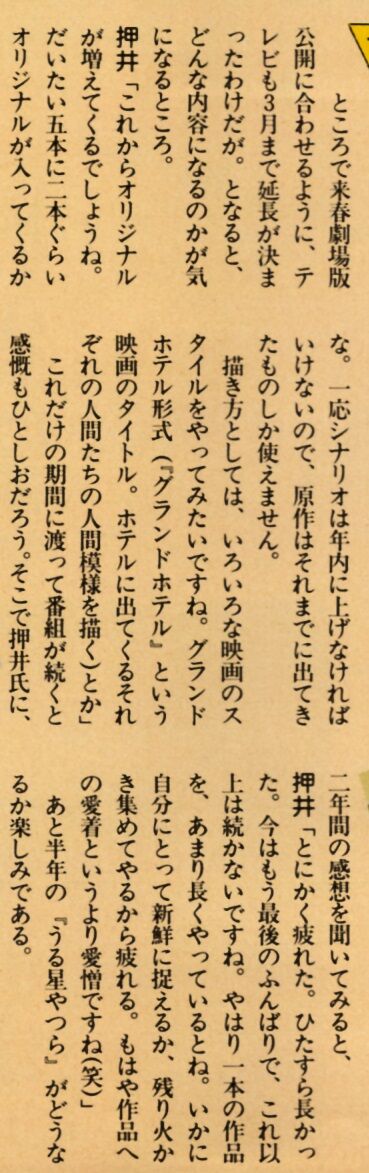 ところで来春劇場版
公開に合わせるように、テ
レビも3月まで延長が決ま
ったわけだが。となると、
どんな内容になるのかが気
になるところ。
押井「これからオリジナル
が増えてくるでしょうね。
だいたい五本に二本ぐらい
オリジナルが入ってくるか
な。一応シナリオは年内に上げなければ
いけないので、原作はそれまでに出てき
たものしか使えません。
描き方としては、いろいろな映画のス
タイルをやってみたいですね。グランド
ホテル形式(『グランドホテル』という
映画のタイトル。ホテルに出てくるそれ
ぞれの人間たちの人間模様を描く)とか」
これだけの期間に渡って番組が続くと
感慨もひとしおだろう。そこで押井氏に、
二年間の感想を聞いてみると、
押井「とにかく疲れた。ひたすら長かっ
た。今はもう最後のふんばりで、これ以
上は続かないですね。やはり一本の作品
を、あまり長くやっているとね。いかに
自分にとって新鮮に捉えるか、残り火か
き集めてやるから疲れる。もはや作品へ
の愛着というより愛憎ですね(笑)」
あと半年の『うる星やつら』がどうな
るか楽しみである。